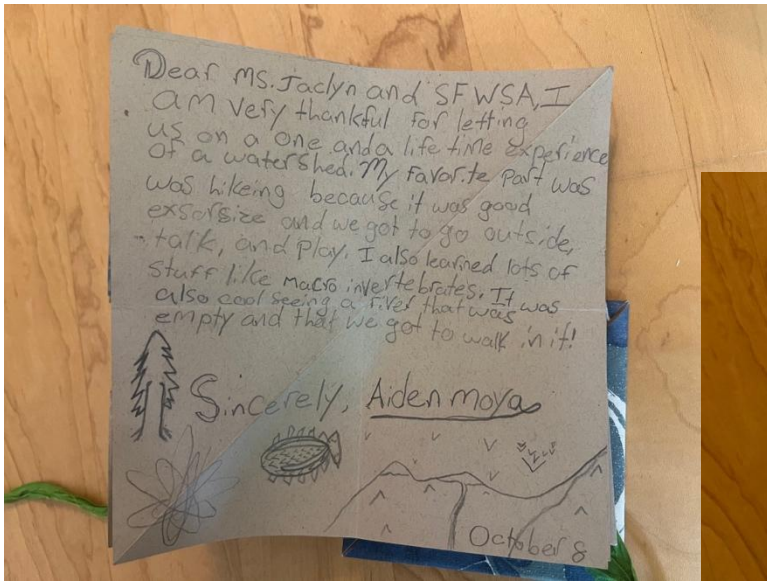 Dear Ms. Jaclyn and SFWSA, I
am very thankful for letting
us on a one and a life time experience
of a watershed. My favorite part was
was hikeing because it was good
exsorsize and we got to go outside,
talk, and play. I also learned lots of
stuff like macro invertebrates. It was
also cool seeing a river that was
empty and that we got to walk in it!
Sincerely, Aiden moya
October 8